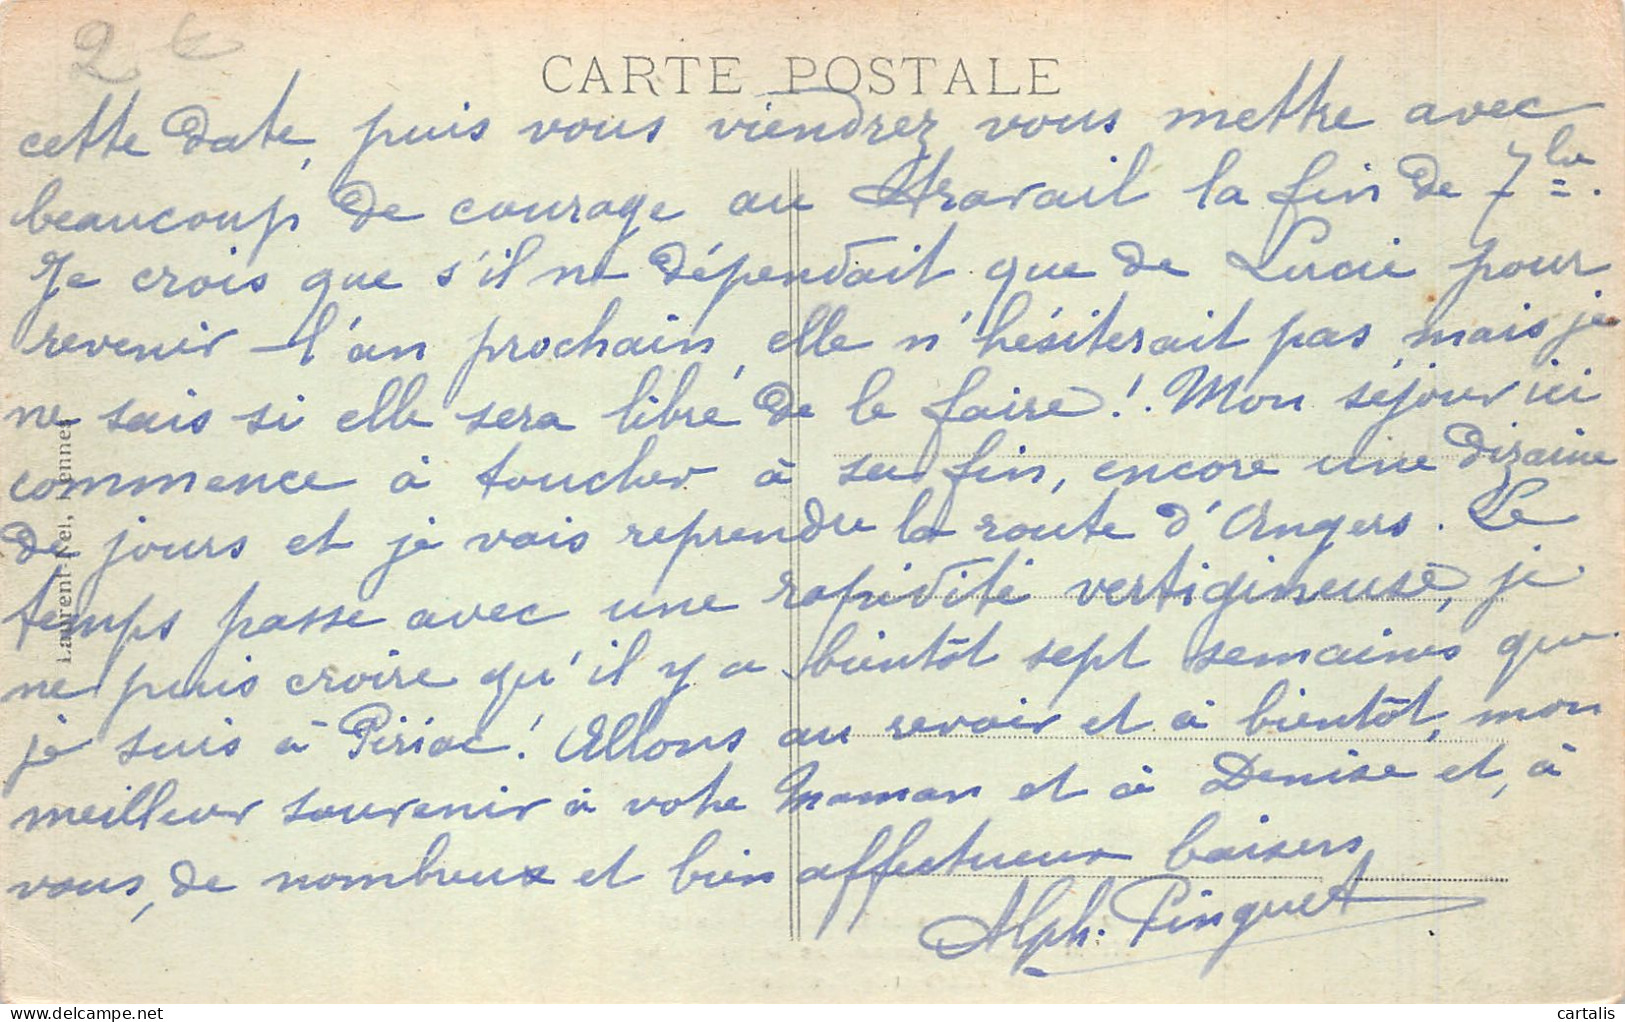 2 €
CARTE POSTALE
cette date, puis vous viendrez vous mettre avec
beaucoup de courage au travail la fin de 7bre.
Je crois que s'il ne dépendait que de Lucie pour
revenir l'an prochain, elle n'hésiterait pas, mais je
ne sais si elle sera libre de le faire! Mon séjour ici
commence à toucher à sa fin, encore une dizaine
de jours et je vais reprendre la route d'Angers. Le
temps passe avec une rapidité vertigineuse, je
ne puis croire qu'il y a bientôt sept semaines que
je suis à Piriac! Allons au revoir et à bientôt, mon
meilleur souvenir à votre maman et à Denise et, à
vous, de nombreux et bien affectueux baisers
Alph. Pinguet
Laurent-Nel, Rennes
cartalis